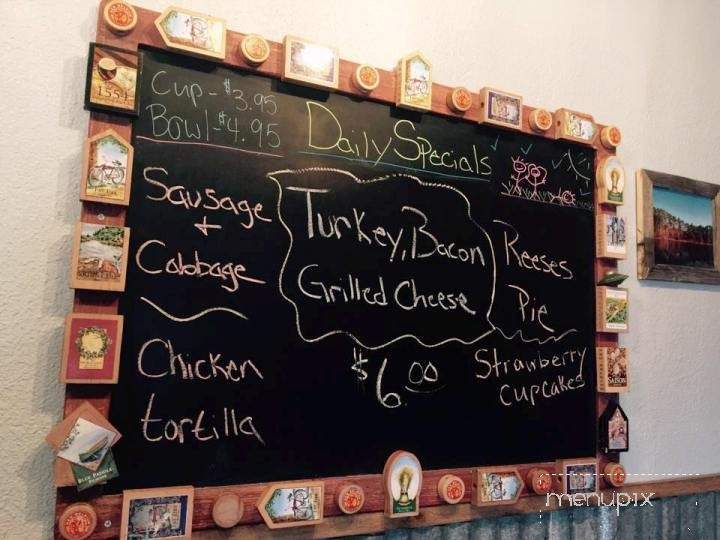 Cup - $3.95
Bowl - $4.95
Daily Specials
Sausage
+
Cabbage
Chicken
tortilla
Turkey, Bacon
Grilled Cheese
$6.00
Reeses
Pie
Strawberry
cupcakes
1554
SAISON
menupix